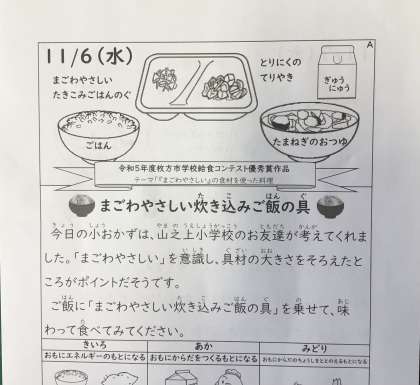 A
11/6(水)
まごわやさしい
たきこみごはんのぐ
とりにくの
てりやき
ぎゅう
にゅう
ごはん
たまねぎのおつゆ
令和5年度枚方市学校給食コンテスト優秀賞作品
テーマ「『まごわやさしい』の食材を使った料理
まごわやさしい炊き込みご飯の具
今日の小おかずは、山之上小学校のお友達が考えてくれま
した。「まごわやさしい」を意識し、具材の大きさをそろえたと
ころがポイントだそうです。
ご飯に「まごわやさしい炊き込みご飯の具」を乗せて、味
わって食べてみてください。
きいろ
あか
みどり
おもにエネルギーのもとになる
おもにからだをつくるもとになる
おもにからだのちょうしをととのえるもとになる